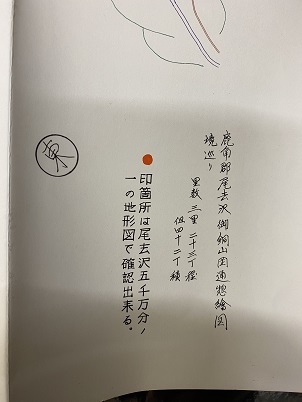 鹿角郡尾去沢御銅山岡通惣繪図
境巡り
里数三里二十三丁程
但四十二丁積
印箇所は尾去沢五千万分ノ
一の地形図で確認出来る。
東